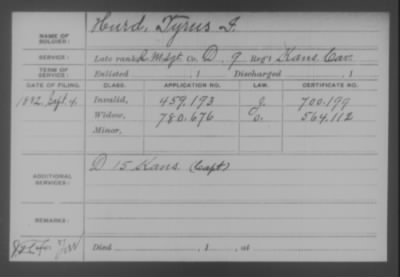 NAME OF SOLDIER: Hurd, Tyrus I.
SERVICE: Late rank Q. M. Sgt. Co. D. 9 Reg't Kans. Cav.
TERM OF SERVICE: Enlisted , 1 Discharged , 1
DATE OF FILING. CLASS. APPLICATION NO. LAW. CERTIFICATE NO.
1892, Sept. 4. Invalid, 459.193 700.199
Widow, 780.676 564.112
Minor,
ADDITIONAL SERVICES: D 15 Kans. (Capt)
REMARKS:
Died , 1 , at